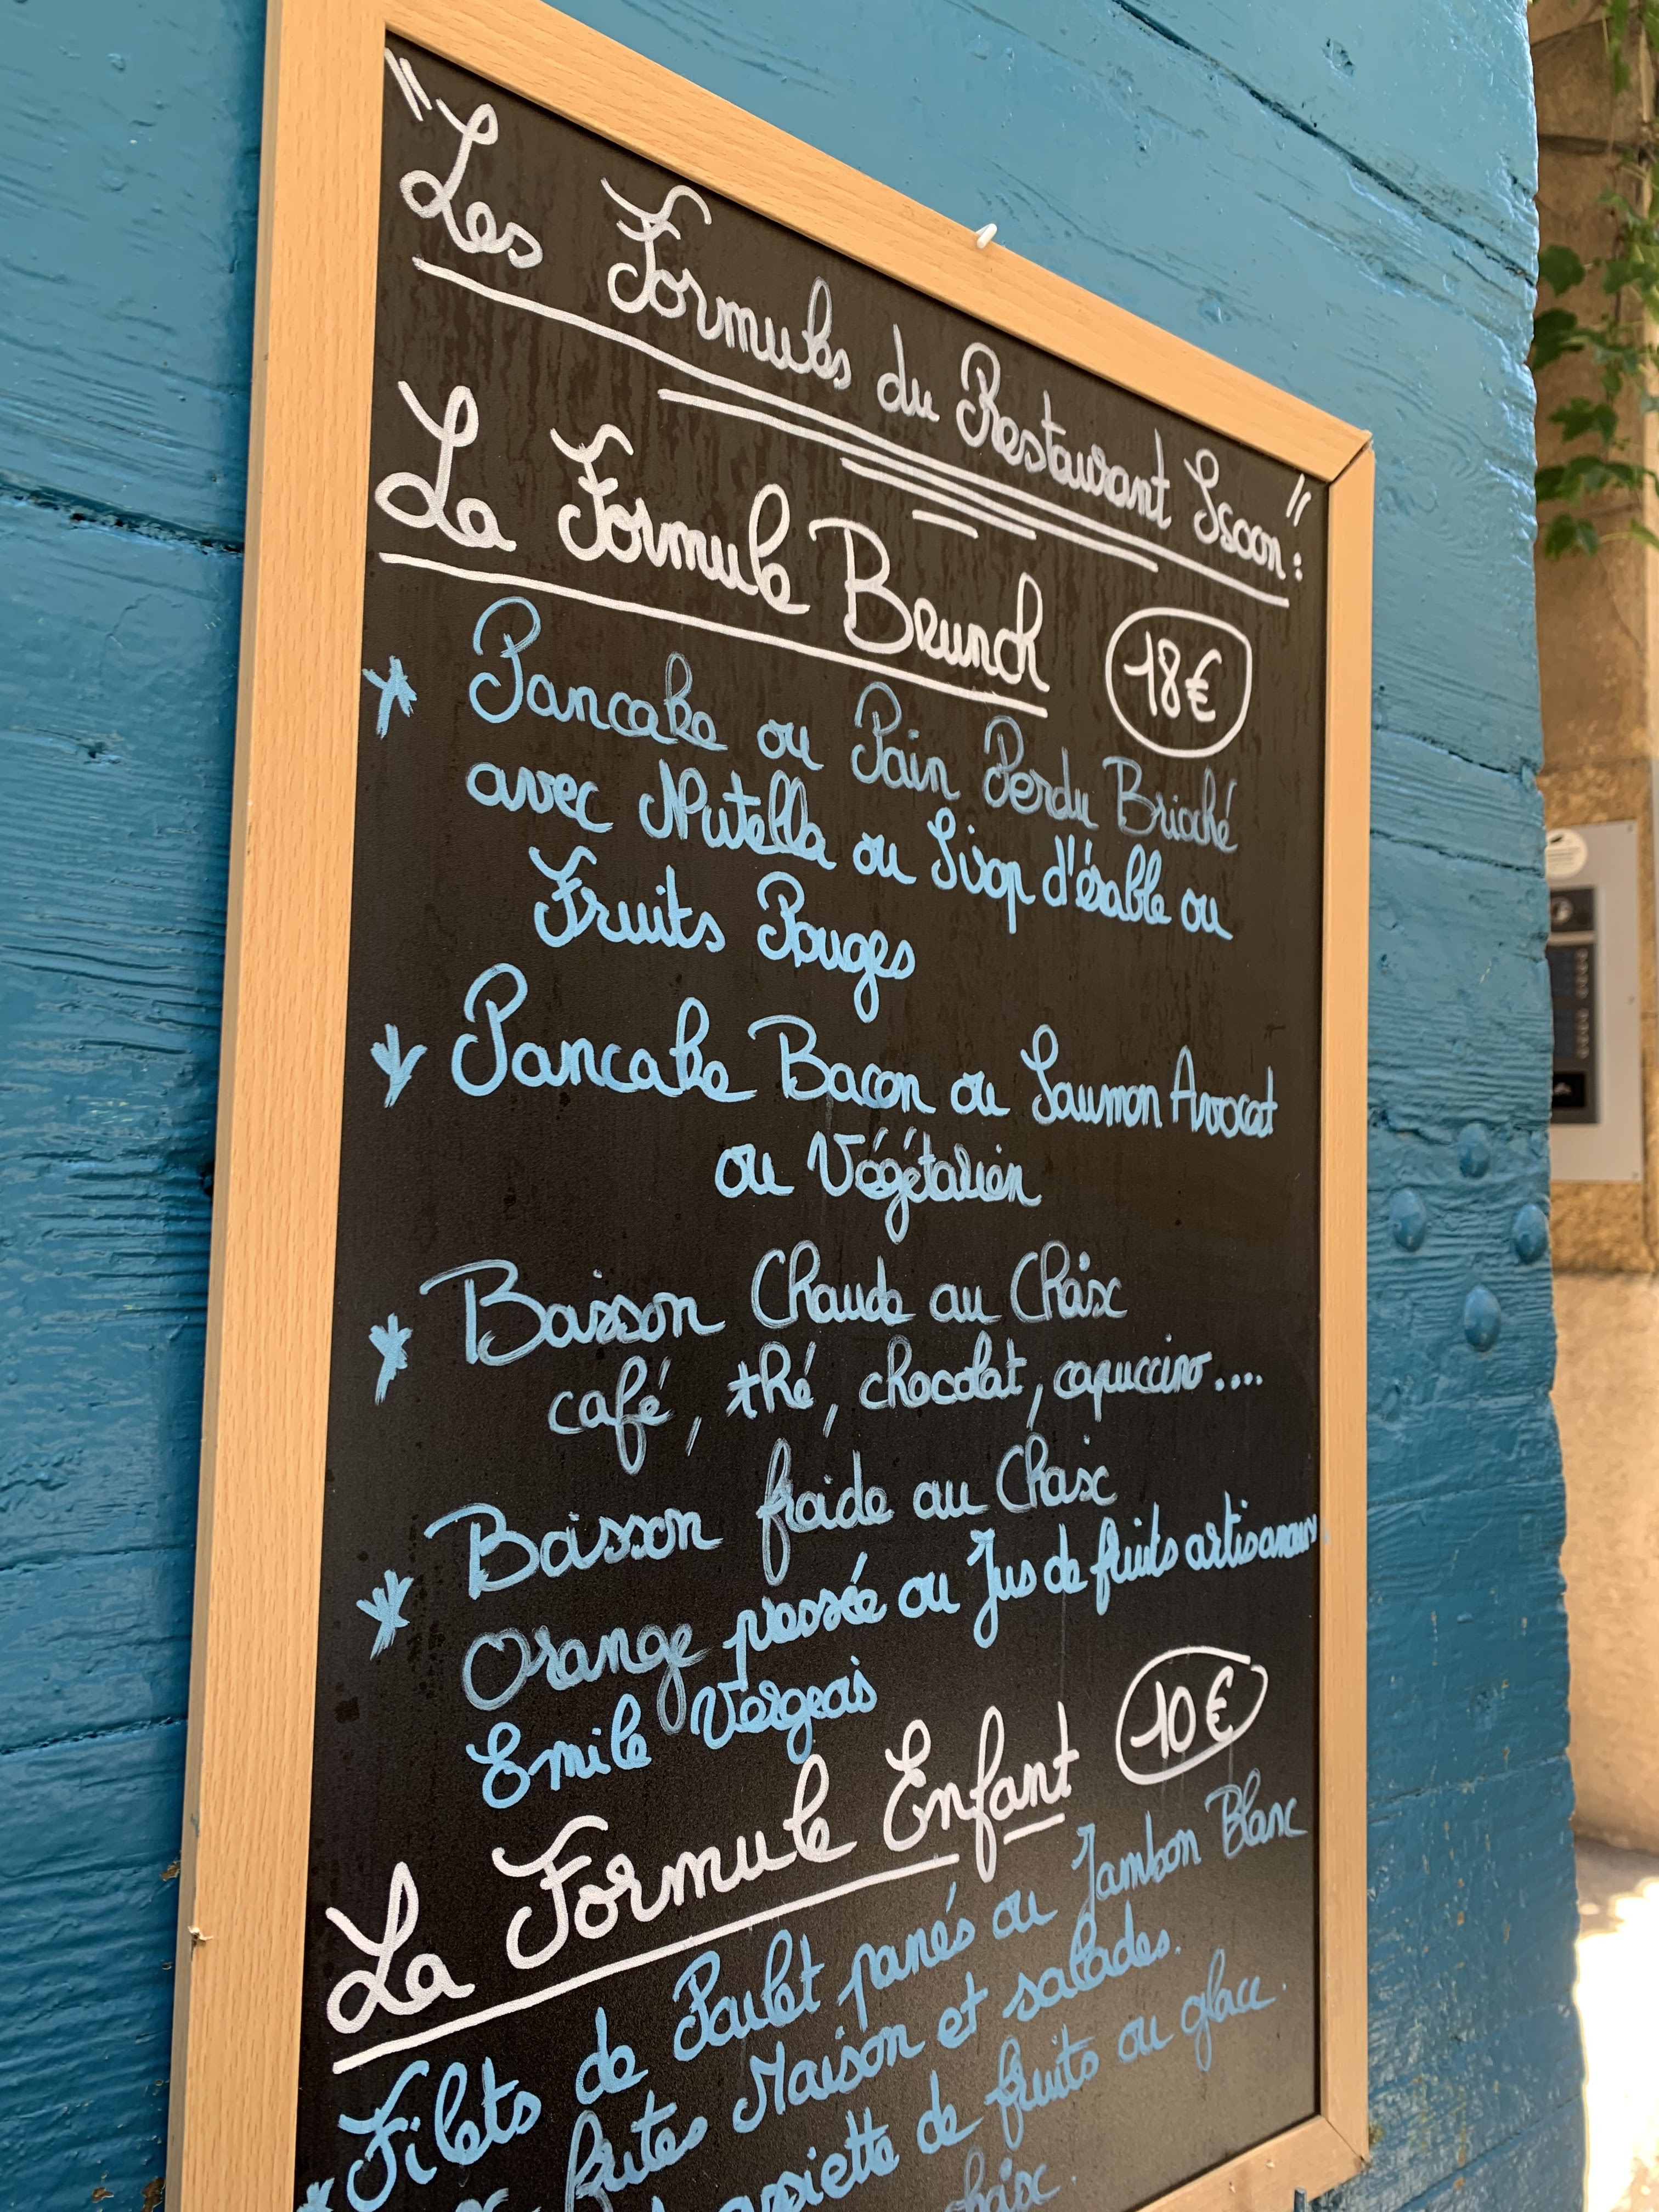 "Les Formules du Restaurant Issoon:"
La Formule Brunch 18€
* Pancake ou Pain Perdu Brioché
avec Nutella ou Sirop d'érable ou
Fruits Rouges
* Pancake Bacon ou Saumon Avocat
ou Végétarien
* Boisson Chaude au Choix
café, thé, chocolat, capuccino....
* Boisson froide au Choix
Orange pressée ou Jus de fruits artisanaux.
Emile Vergeois
La Formule Enfant 10€
* Filets de Poulet panés ou Jambon Blanc
frites Maison et salades.
assiette de fruits ou glace.
choix.